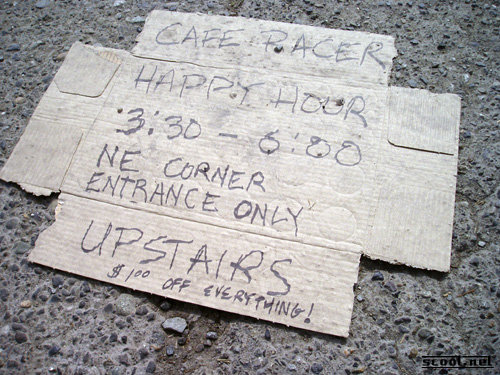 CAFE RACER
HAPPY HOUR
3:30 - 6:00
NE CORNER
ENTRANCE ONLY"
UPSTAIRS
$1.00 OFF EVERYTHING!
scoot.net